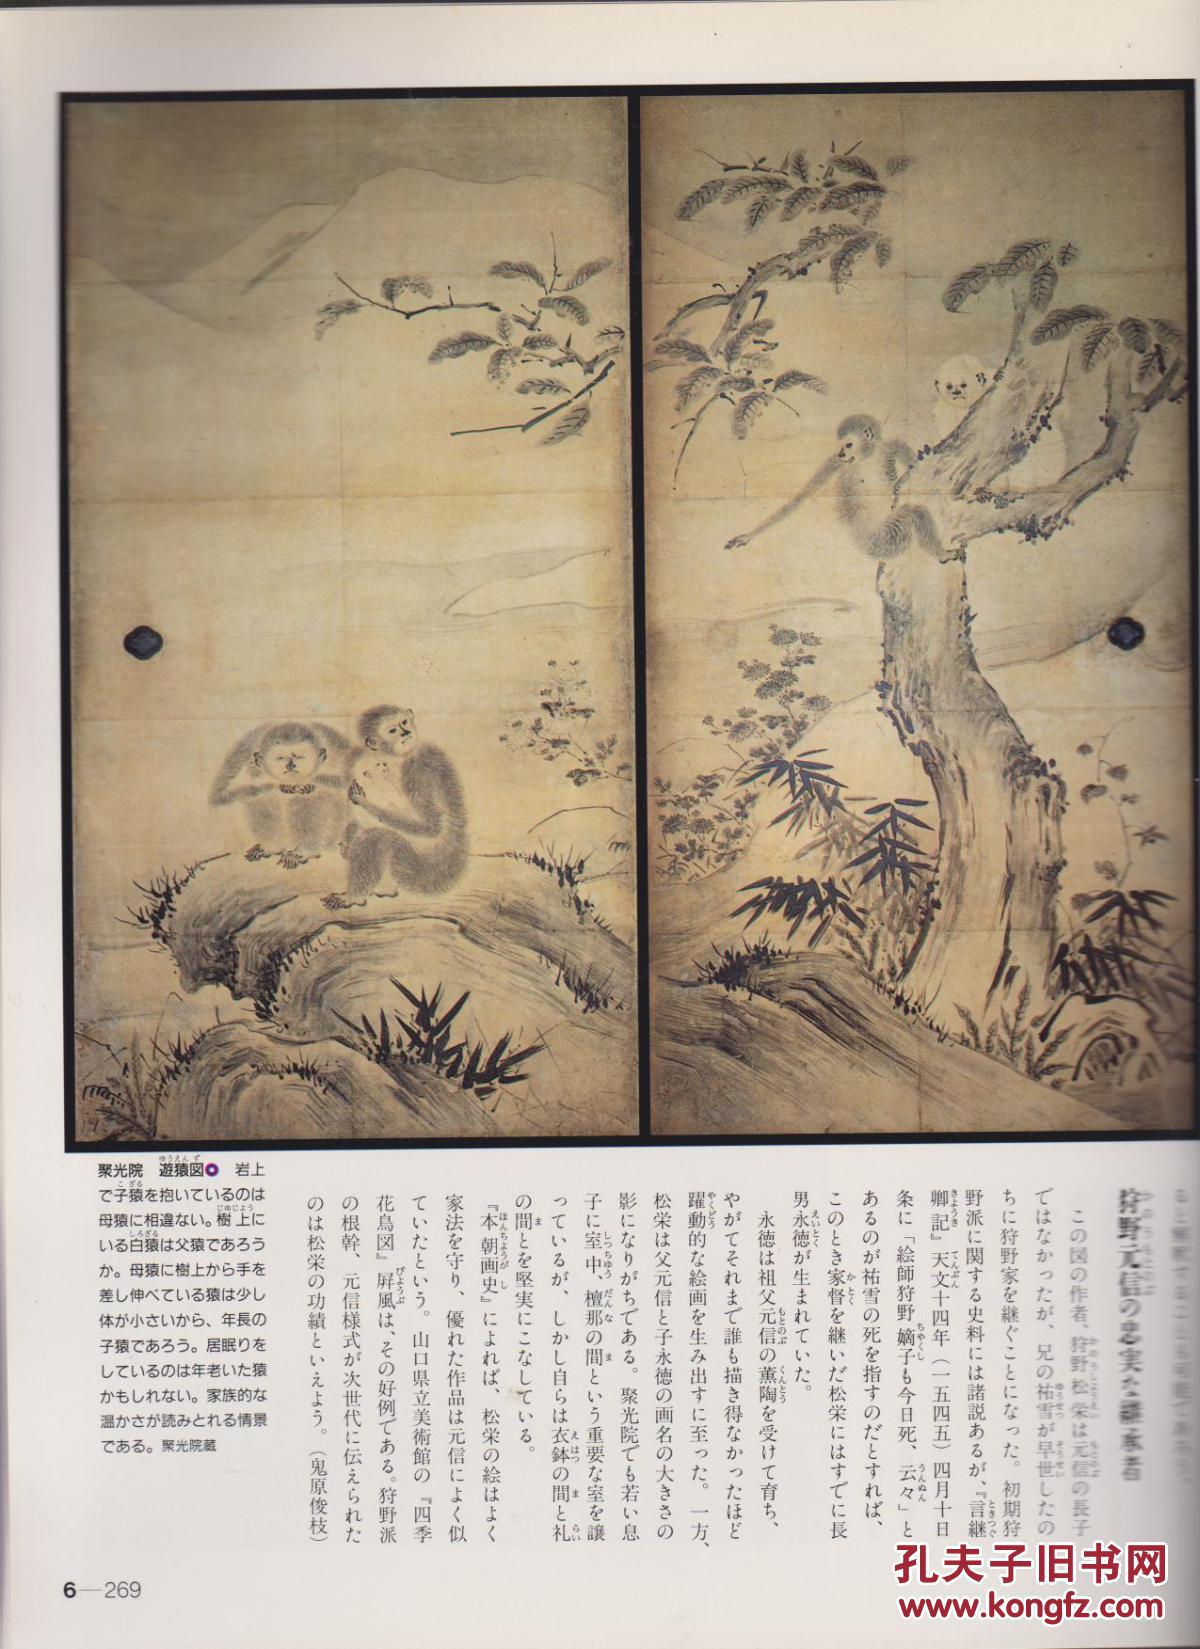 狩野元信の忠実な継承者
この図の作者、狩野松栄は元信の長子
ではなかったが、兄の祐雪が早世したの
ちに狩野家を継ぐことになった。初期狩
野派に関する史料には諸説あるが、『言継
卿記』天文十四年（一五四五）四月十日
条に「絵師狩野嫡子も今日死、云々」と
あるのが祐雪の死を指すのだとすれば、
このとき家督を継いだ松栄にはすでに長
男永徳が生まれていた。
永徳は祖父元信の薫陶を受けて育ち、
やがてそれまで誰も描き得なかったほど
躍動的な絵画を生み出すに至った。一方、
松栄は父元信と子永徳の画名の大きさの
影になりがちである。聚光院でも若い息
子に室中、檀那の間という重要な室を譲
っているが、しかし自らは衣鉢の間と礼
の間とを堅実にこなしている。
『本朝画史』によれば、松栄の絵はよく
家法を守り、優れた作品は元信によく似
ていたという。山口県立美術館の『四季
花鳥図』屛風は、その好例である。狩野派
の根幹、元信様式が次世代に伝えられた
のは松栄の功績といえよう。（鬼原俊枝）
聚光院　遊猿図 岩上
で子猿を抱いているのは
母猿に相違ない。樹上に
いる白猿は父猿であろう
か。母猿に樹上から手を
差し伸べている猿は少し
体が小さいから、年長の
子猿であろう。居眠りを
しているのは年老いた猿
かもしれない。家族的な
温かさが読みとれる情景
である。聚光院蔵
6—269
孔夫子旧书网
www.kongfz.com